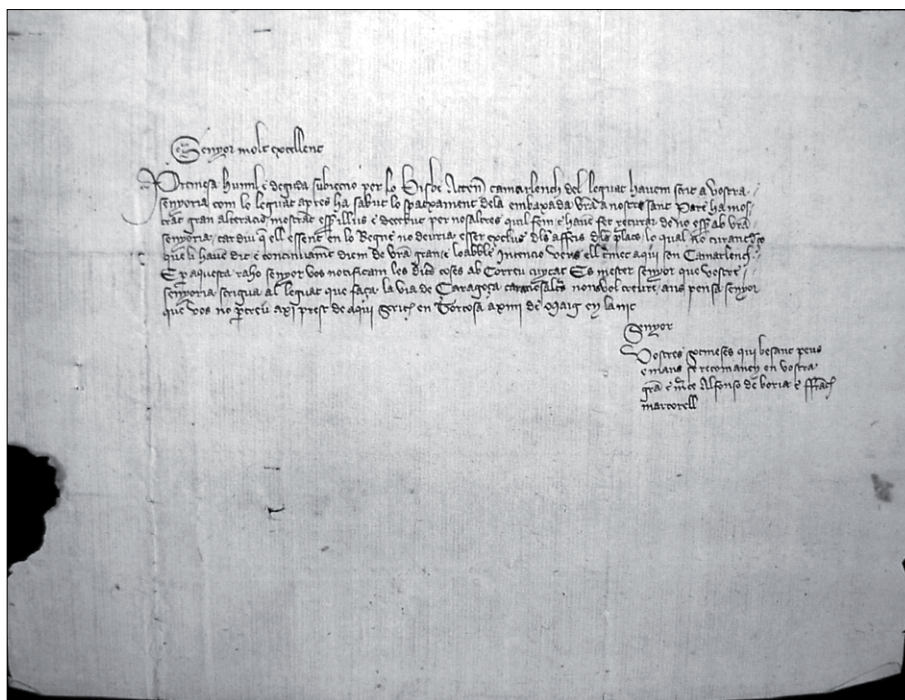 Senyor molt excellent
Promesa humil e deguda subieccio per lo bisbe Acten camarlench del leguat havem scrit a vostra
senyoria com lo leguat apres ha sabut lo spachament dela embaxada vra a nostre sant Pare ha mos
trat gran alteracio mostrat esser illus e decebut per nosaltres qual fem e havem fet recitar de no esser ab vra
senyoria, car diu q ell essent en lo Regne no devria esser exclus dls affers dls lo qual no
que li havem dit e continuamt diem de vra gran e loabble Intencio vers ell e mes aqui son Camarlench
E p aquesta raho senyor vos notificam les dites coses ab Correu cuytat Es mester senyor que vostra
senyoria scrigua al leguat que faça la via de Caragoça car nosaltres nons vol creure, ans pensa senyor
que vos no partreu axi prest de aqui Scrita en Tortosa a xiiii de Maig en la nit
Senyor
Vostres sotmeses qui besant peus
e mans se recomanen en vostra
gra e mce Alfonso de boria e ffrach
martorell